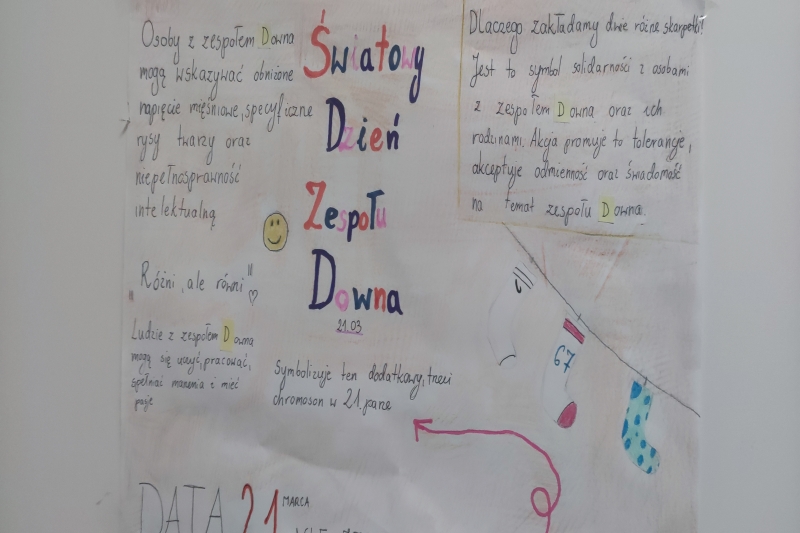 Osoby z zespołem Downa
mogą wskazywać obniżone
napięcie mięśniowe, specyficzne
rysy twarzy oraz
niepełnosprawność
intelektualną
Różni, ale równi"
Ludzie z zespołem Downa
mogą się uczyć, pracować,
spełniać marzenia i mieć
pasje
Światowy
Dzień
Zespołu
Downa
21.03
Symbolizuje ten dodatkowy, trzeci
chromoson w 21. parze
Dlaczego zakładamy dwie różne skarpetki?
Jest to symbol solidarności z osobami
z zespołem Downa oraz ich
rodzinami. Akcja promuje to tolerancje,
akceptuje odmienność oraz świadomość
na temat zespołu Downa.
67
DATA 21 MARCA